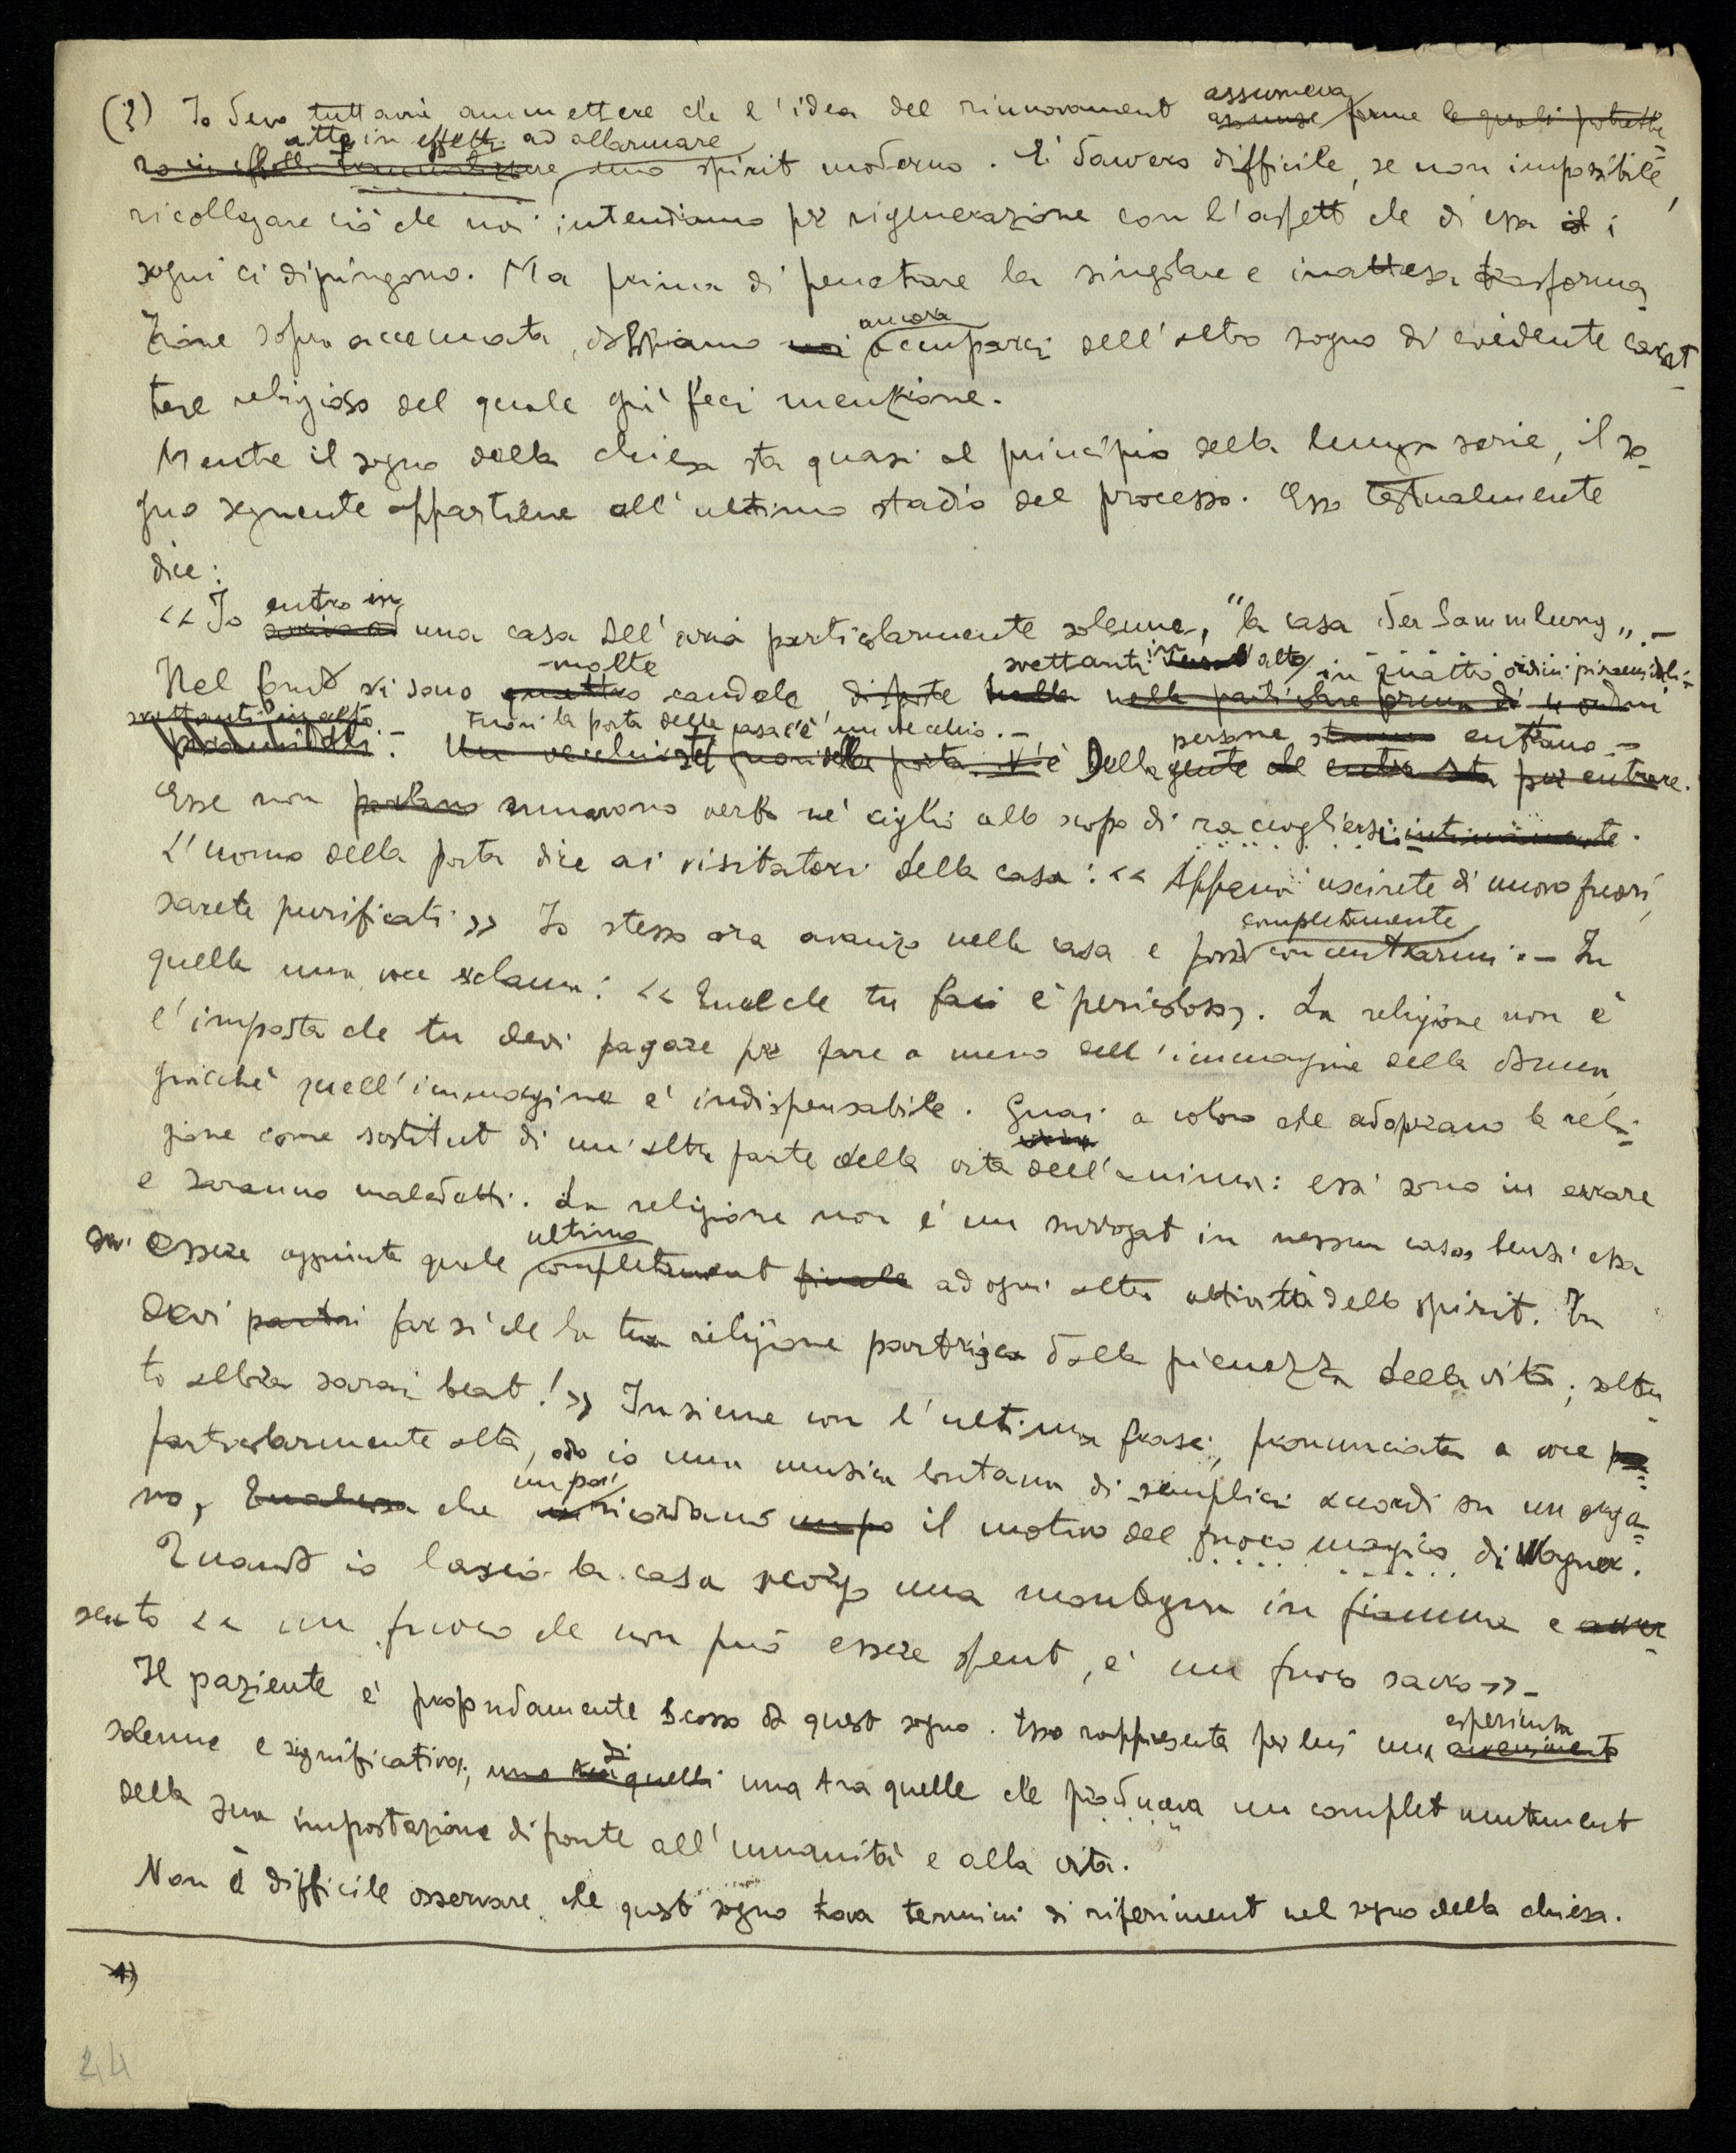 (3) Io devo tuttavia ammettere che l'idea del rinnovamento assumeva
assunse forme le quali potrebbe-
atte in effetti ad allarmare
uno spirito moderno. E' davvero difficile, se non impossibile,
ricollegare ciò che noi intendiamo per rigenerazione con l'aspetto che di essa i
sogni ci dipingono. Ma prima di penetrare la singolare e inattesa trasforma-
zione sopra accennata, dobbiamo noi ancora occuparci dell'altro sogno di evidente carat-
tere religioso del quale già feci menzione.
Mentre il sogno della chiesa sta quasi al principio della lunga serie, il so-
gno seguente appartiene all'ultimo stadio del processo. Esso testualmente
dice:
<< Io entro in una casa dall'aria particolarmente solenne, "la casa der Sammlung„. -
molte svettanti in alto in quattro ordini piramidali-
Nel fondo vi sono quattro candele, disposte nella nella particolare forma di 4 ordini
svettanti in alto Fuori la porta della casa c'è un vecchio. -
piramidali. - Un vecchio sta fuori della porta. V'è Della gente che entra sta per entrare.
persone stanno entrano -
Esse non parlano muovono verbo nè ciglio allo scopo di raccogliersi intimamente.
L'uomo della porta dice ai visitatori della casa: << Appena uscirete di nuovo fuori,
sarete purificati >> Io stesso ora avanzo nella casa e posso completamente concentrarmi. - In
quella una voce esclama: << Quel che tu fai è pericoloso. La religione non è
l'imposta che tu devi pagare per fare a meno dell'immagine della donna,
giacchè quell'immagine è indispensabile. Guai a coloro che adoprano la reli-
gione come sostituto di un'altra parte della vita dell'anima: essi sono in errore
e saranno maledetti. La religione non è un surrogato in nessun caso, bensì essa
essere aggiunta quale ultimo completamento finale ad ogni altra attività dello spirito. Tu
devi far sì che la tua religione partorisca dalla pienezza della vita; soltan-
to allora sarai beato! >> Insieme con l'ultima frase, pronunciata a voce
particolarmente alta, odo io una musica lontana di semplici accordi su un orga-
no, che un po' ricordano un po il motivo del fuoco magico di Wagner.
Quando io lascio la casa scorgo una montagna in fiamme e
sento << un fuoco che non può essere spento, è un fuoco sacro >> -
Il paziente è profondamente scosso da questo sogno. Esso rappresenta per lui una esperienza avvenimento
solenne e significativa; una tra quelle che produceva un completo mutamento
della sua impostazione di fronte all'umanità e alla vita.
Non è difficile osservare che questo sogno trova termini di riferimento nel sogno della chiesa.
1)
24